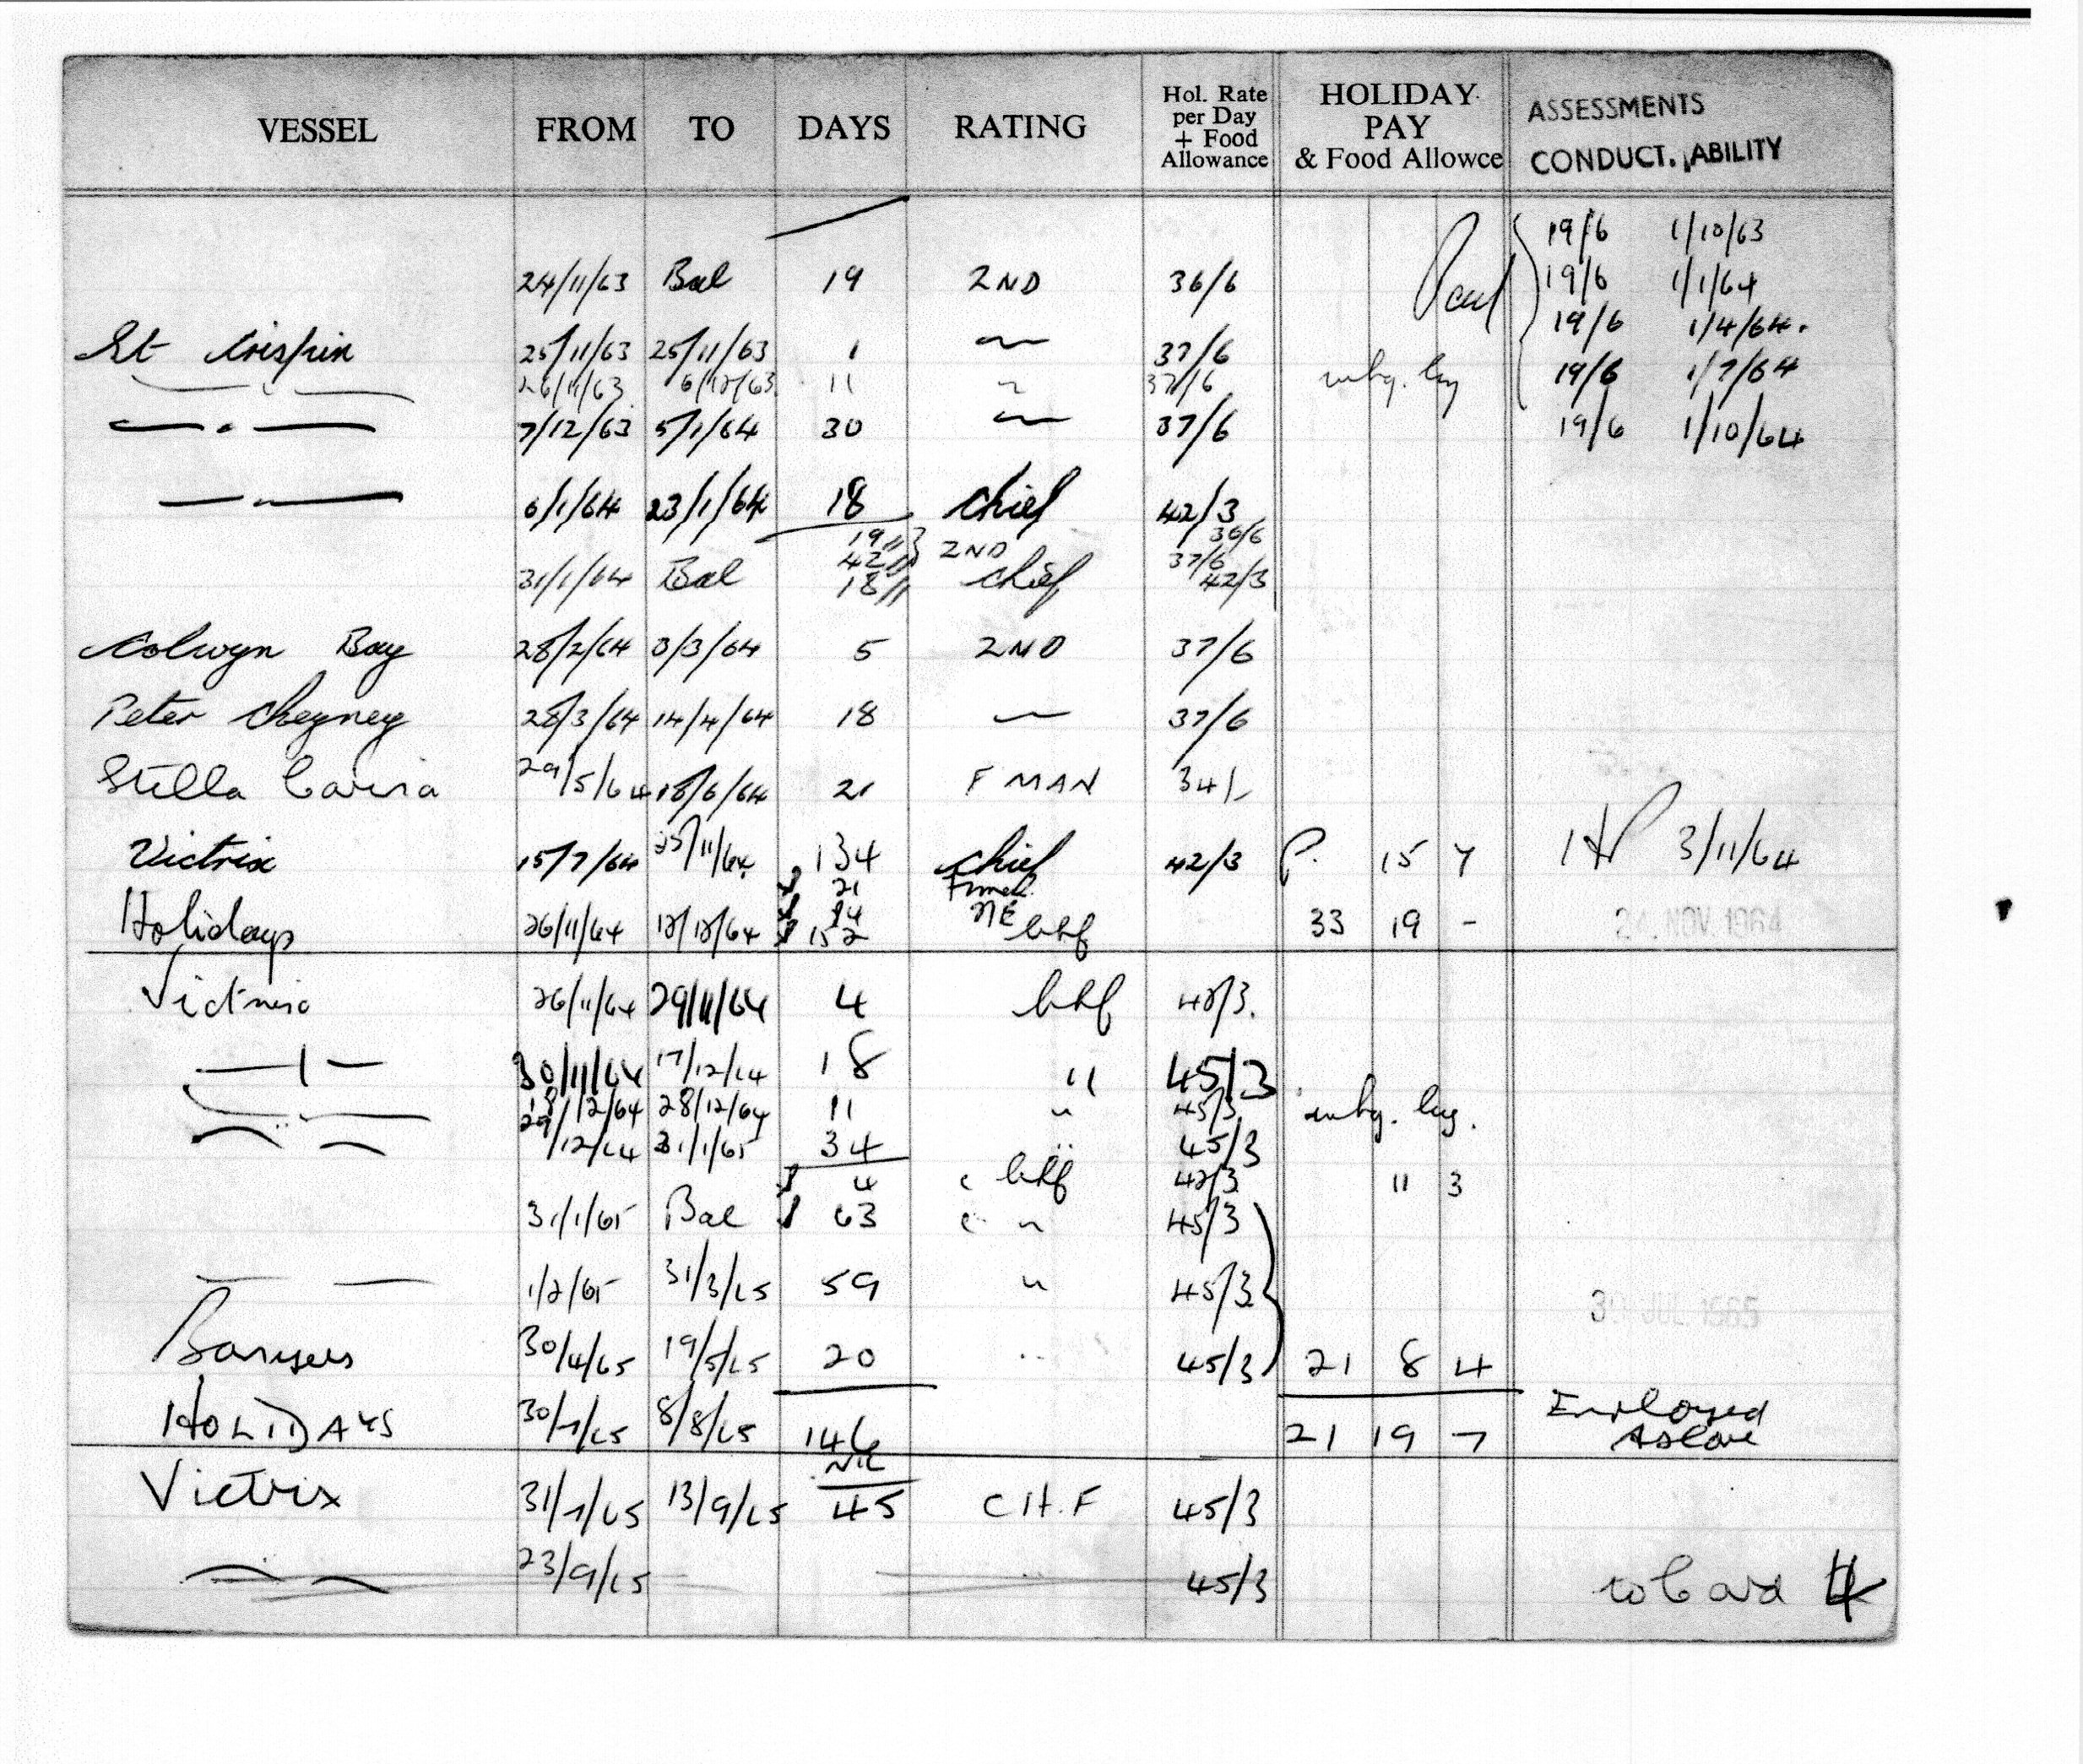 VESSEL FROM TO DAYS RATING Hol. Rate per Day + Food Allowance HOLIDAY PAY & Food Allowce ASSESSMENTS CONDUCT. ABILITY
19/6 1/10/63
24/11/63 Bal 19 2ND 36/6 Paid 19/6 1/1/64
19/6 1/4/64.
St Crispin 25/11/63 25/11/63 1 — 37/6
26/11/63 6/12/63 11 " 37/6 19/6 1/7/64
— " — 7/12/63 5/1/64 30 — 37/6 19/6 1/10/64
— " — 6/1/64 23/1/64 18 Chief 42/3
19 36/6
42 2ND 37/6
31/1/64 Bal 18 Chief 42/3
Colwyn Bay 28/2/64 3/3/64 5 2ND 37/6
Peter Cheyney 28/3/64 14/4/64 18 — 37/6
Stella Carina 29/5/64 18/6/64 21 F MAN 34/-
Victrix 15/7/64 25/11/64 134 Chief 42/3 P. 15 7 HP 3/11/64
21 Fman
24 2NE
Holidays 26/11/64 12/12/64 152 Chf 33 19 - 24. NOV. 1964
Victrix 26/11/64 29/11/64 4 Chf 42/3.
— " — 30/11/64 17/12/64 18 " 45/3
— " — 18/12/64 28/12/64 11 " 45/3
— " — 29/12/64 31/1/65 34 " 45/3
4 Chf 42/3 11 3
31/1/65 Bal 63 " 45/3
— — 1/2/65 31/3/65 59 " 45/3
30 JUL 1965
30/4/65 19/5/65 20 " 45/3 21 8 4
HOLIDAYS 30/7/65 8/8/65 146 21 19 7 Employed
Nil
Victrix 31/7/65 13/9/65 45 CH.F 45/3
— " — 23/9/65 45/3 to Card 4